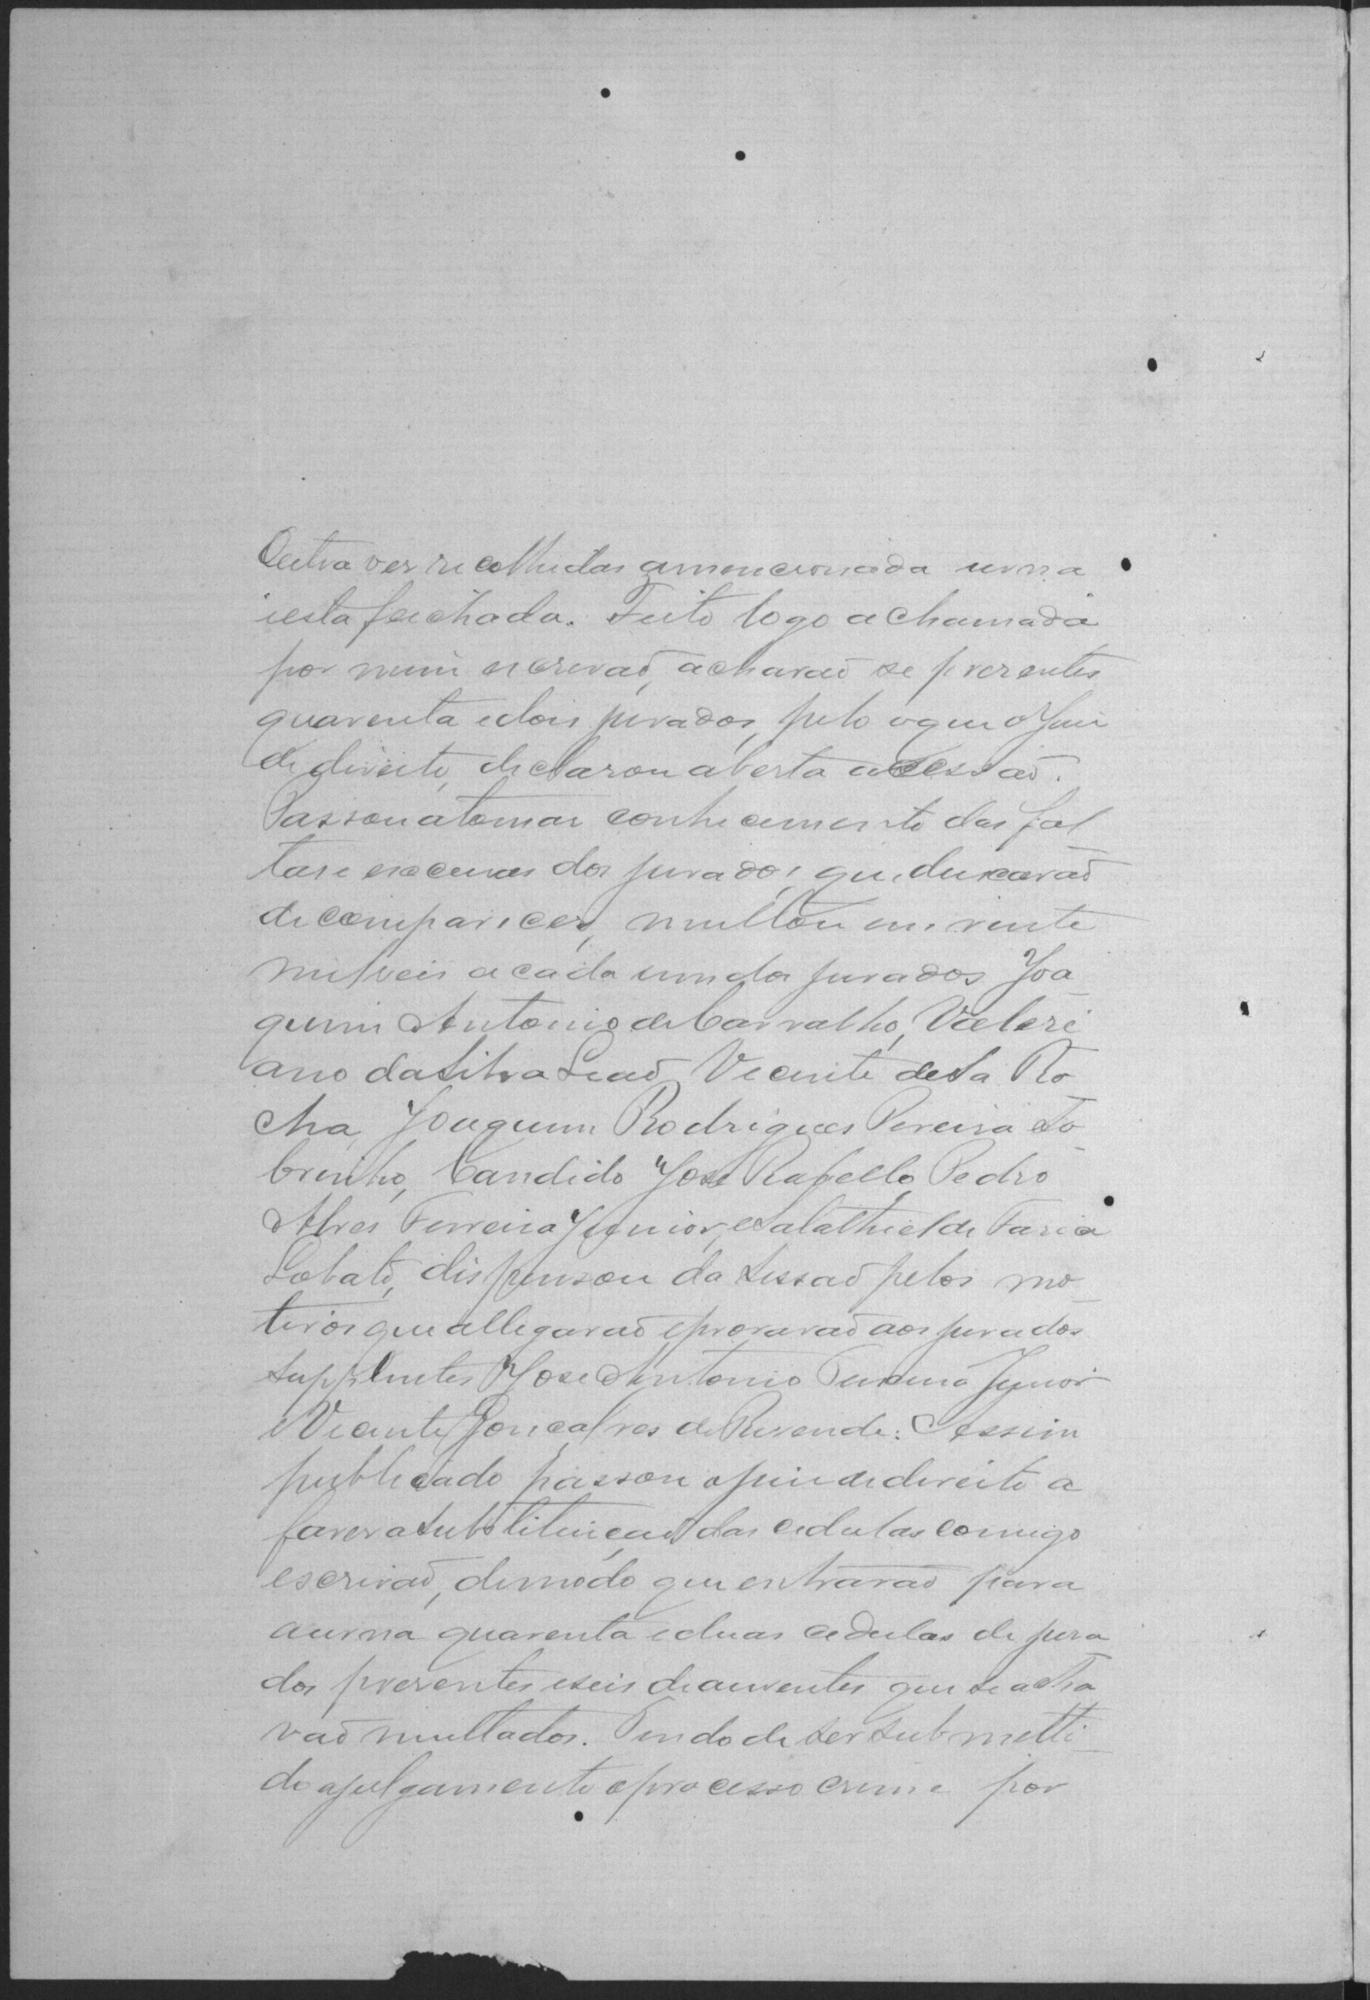 Outra vez recolhidas a mencionada urna
i esta feichada. Feito logo a chamada
por mim escrivaõ, acharaõ se prezentes
quarenta e dois jurados, pelo o que o Juiz
de direito, declarou aberta a Cessaõ.
Passou a tomar conhecimento das fal
tas e excuzas dos jurados, que deixaraõ
de comparicer, multou em vinte
mil reis a cada um dos jurados Joa
quim Antonio de Carvalho, Valeri
ano da Silva Leaõ Vicente de Sa Ro
cha, Joaquim Rodrigues Pereira So
brinho, Candido José Rapello, Pedro
Alves Ferreira Junior, e Salathiel de Faria
Lobato, dispensou da Sessaõ pelos mo
tivos que allegaraõ e provaraõ aos jurados
Supplentes José Antonio Junior
e Vicente Gonçalves de Resende. Assim
publicado passou o juiz de direito a
fazer a Substituiçaõ das cedulas comigo
escrivaõ, de modo que entraraõ para
a urna quarenta e duas cedulas de jura
dos prezentes e seis de auzentes que se acha
vaõ multados. Tendo de ser Submetti
do a julgamento o processo crime por